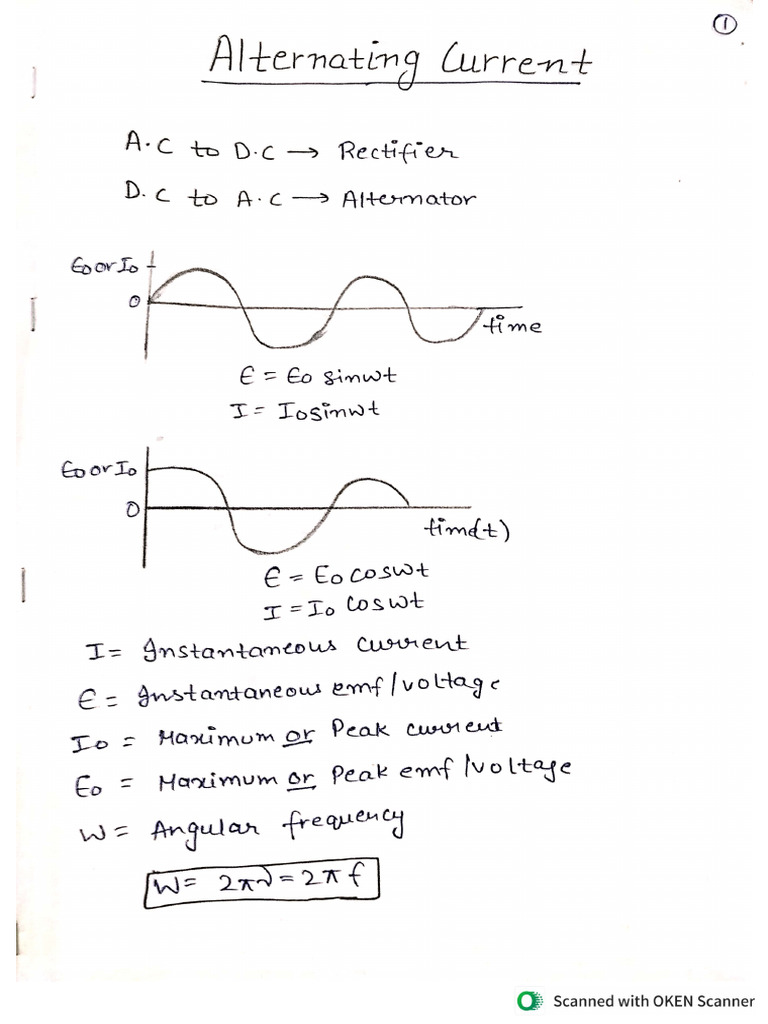 1
Alternating Current
A.C to D.C → Rectifier
D.C to A.C → Alternator
E₀ or I₀
0
time
ε = ε₀ sinωt
I = I₀ sinωt
E₀ or I₀
0
time(t)
ε = E₀ cosωt
I = I₀ cosωt
I = Instantaneous current
ε = Instantaneous emf/voltage
I₀ = Maximum or Peak current
E₀ = Maximum or Peak emf/voltage
W = Angular frequency
W = 2πν = 2πf
Scanned with OKEN Scanner